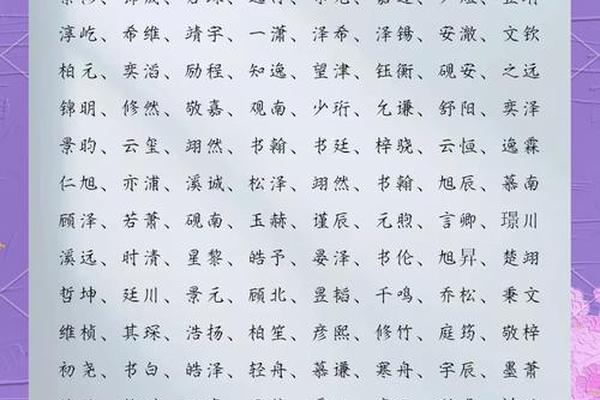 淳屹、希维、靖宇、一潇、泽希、泽锡、安澈、文钦
柏元、奕滔、励程、知逸、望津、钰衡、砚安、之远
锦明、修然、敬嘉、观南、少珩、允谦、舒阳、奕泽
景昀、云玺、翊然、书翰、书廷、梓骁、云恒、逸霖
仁旭、亦浦、溪诚、松泽、翊然、书翰、旭辰、慕南
顾泽、若萧、砚南、玉赫、瑾辰、元煦、言卿、璟川
溪远、时清、星黎、皓予、晏泽、书伦、旭昇、楚翊
哲坤、廷川、景元、顾北、昱韬、千鸣、乔松、秉文
维桢、其琛、浩扬、柏笙、彦熙、修竹、庭筠、敬梓
初尧、书白、皓泽、轻舟、慕谦、寒舟、宇辰、墨萧